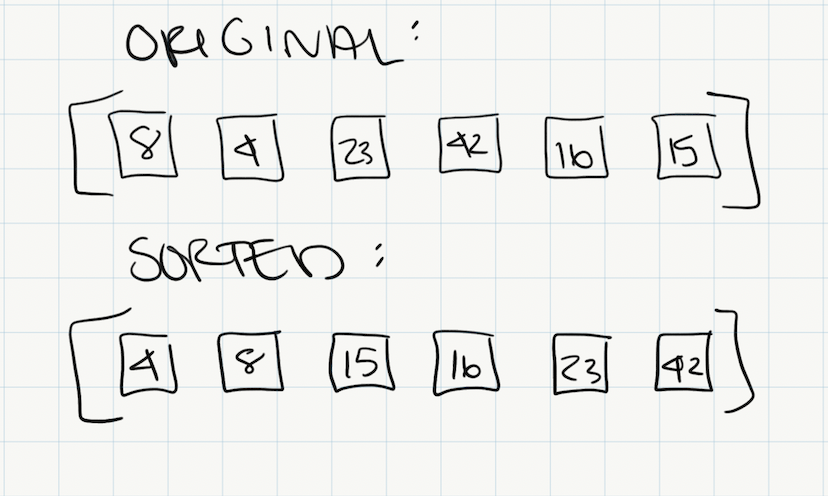 ORIGINAL:
[ 8 4 23 42 16 15 ]
SORTED:
[ 4 8 15 16 23 42 ]